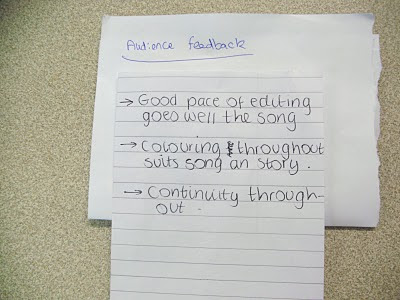 Audience feedback
→ Good pace of editing
goes well the song
→ Colouring throughout
suits song an story.
→ Continuity through-
out.